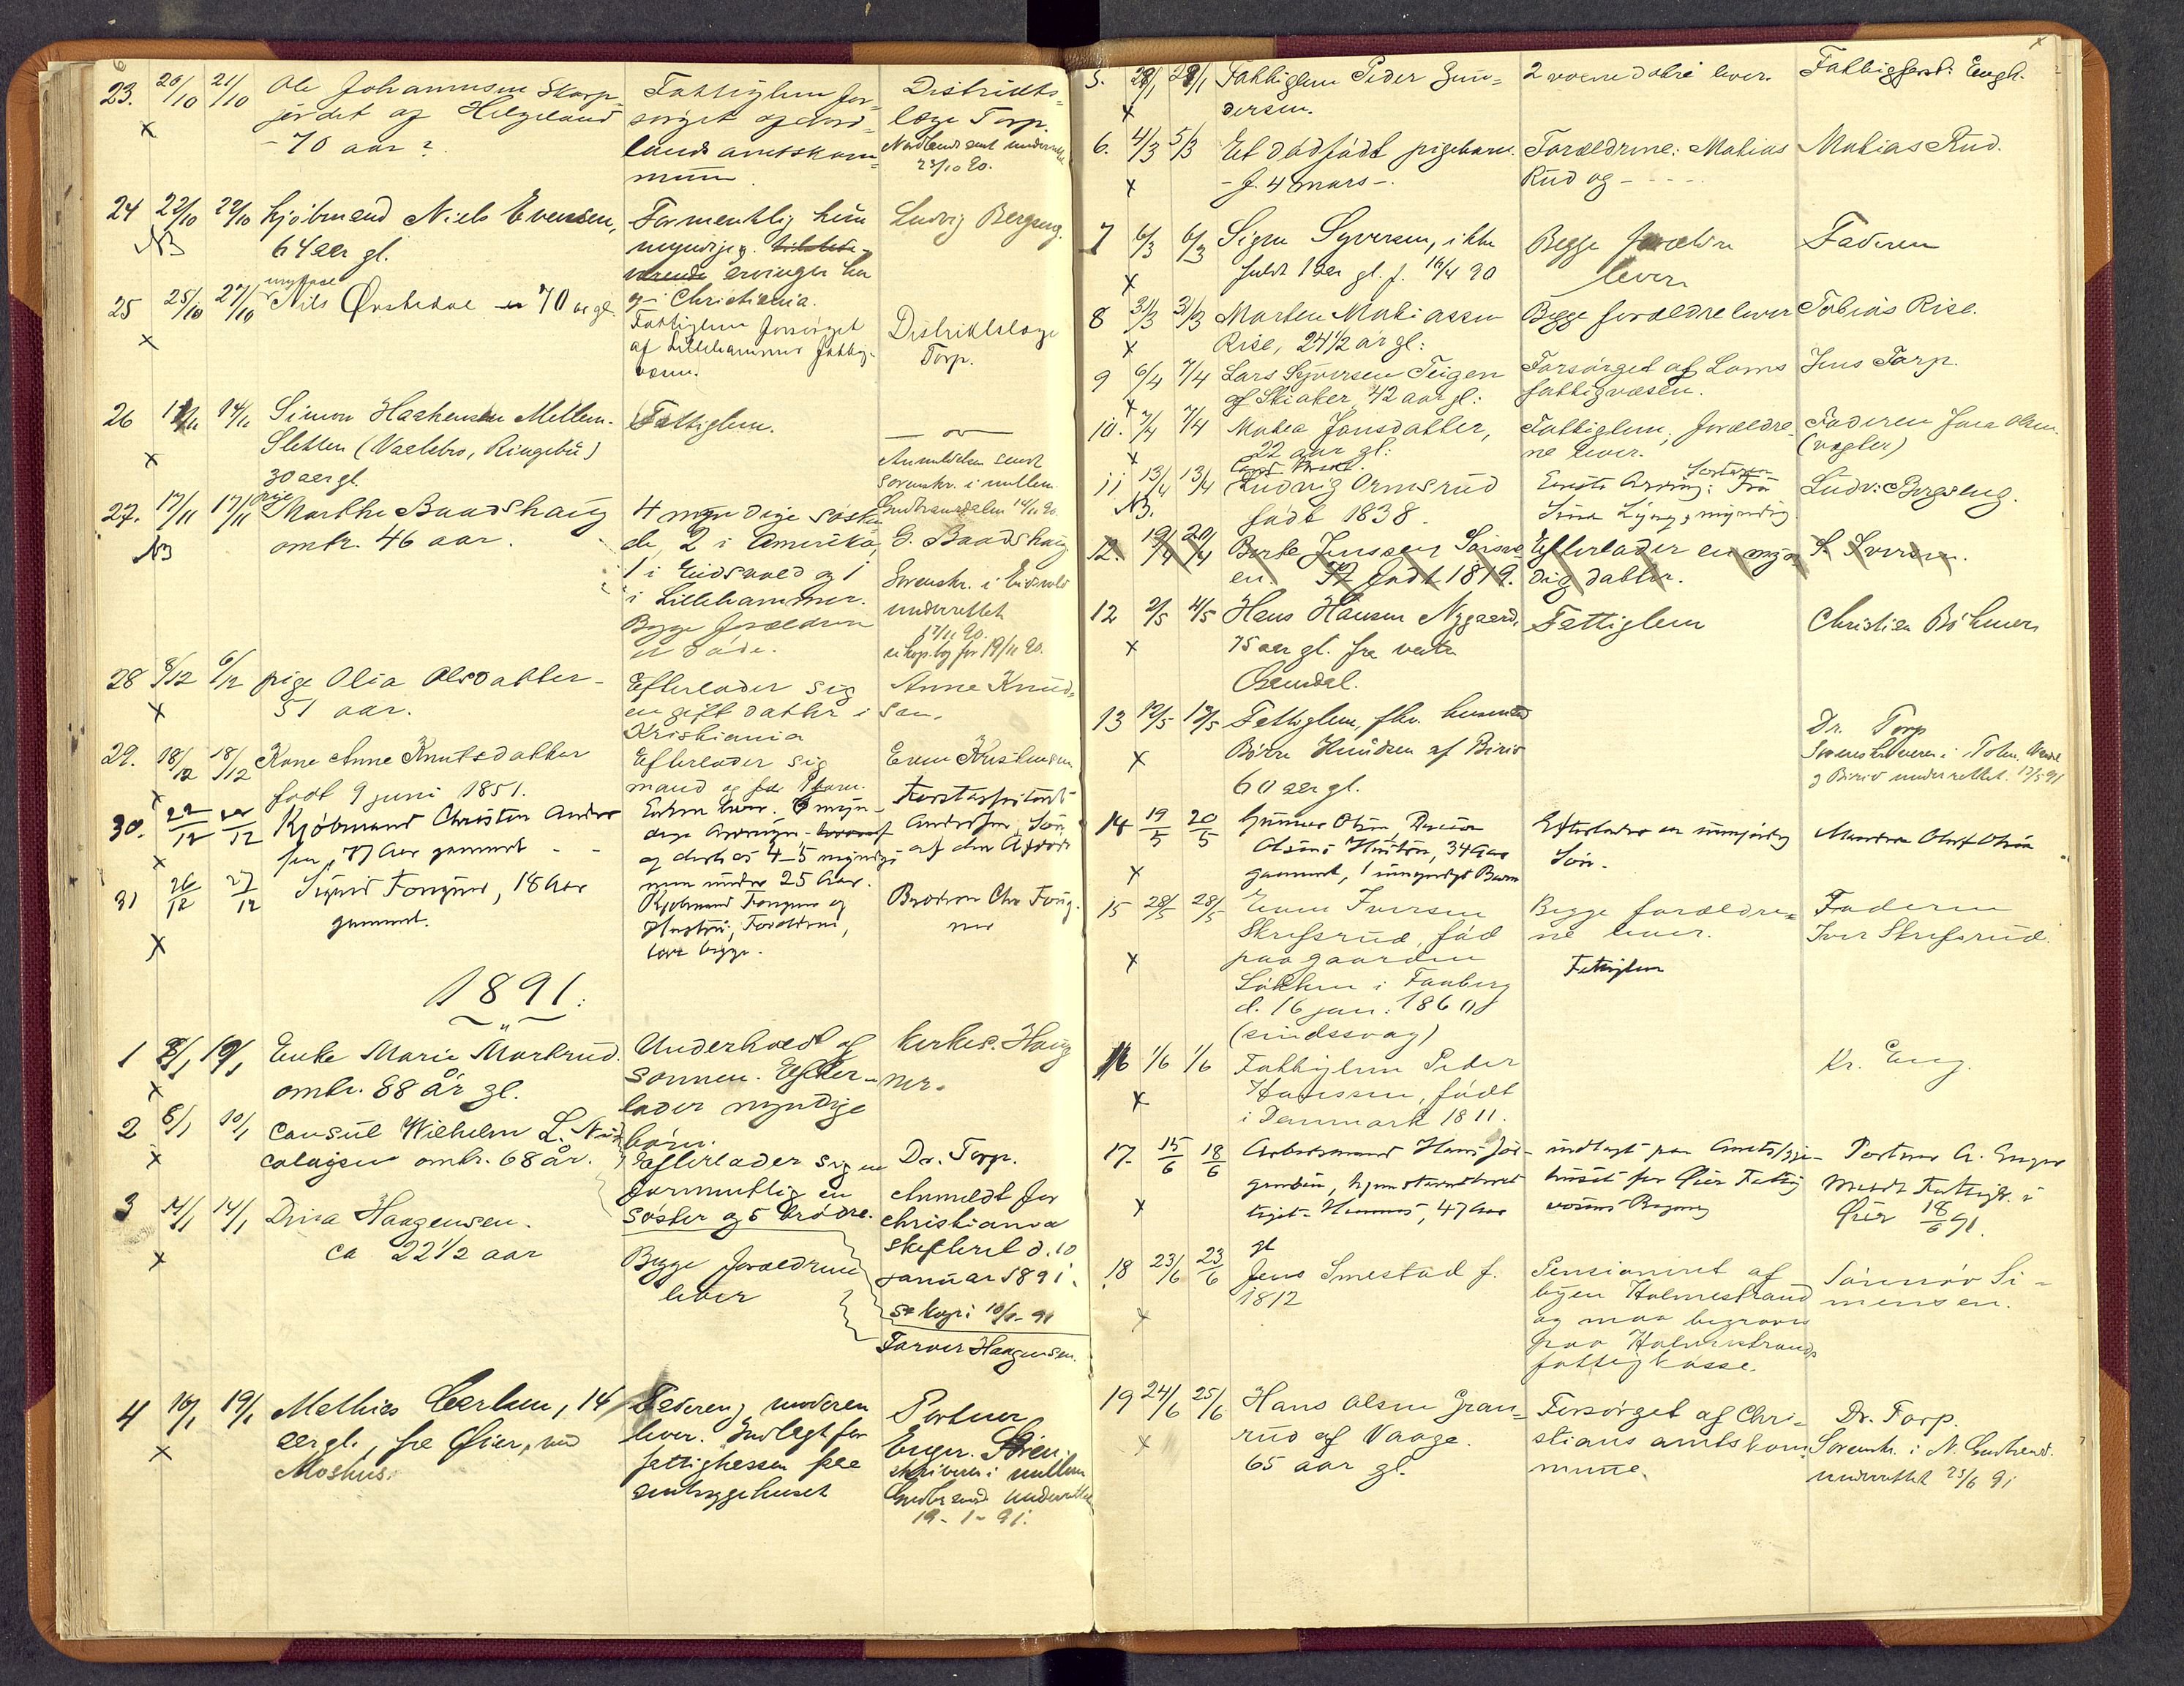 6
23. 20/10 21/10 Ole Johannesen Skarp-
jordet af Helgeland
- 70 aar ?
x
Fattiglem for-
sørget af Nord-
lands amtskom-
mune.
Distrikts-
læge Torp.
Nordlands amt underrettet
23/10 90.
24 22/10 22/10 Kjøbmand Niels Evensen,
64 aar gl.
NB
Formentlig kun
myndige
arvinger her
og i Christiania.
Ludvig Bergseng.
25 25/10 27/10 Nils Øvstedal 70 aar gl.
x
Fattiglem forsørget
af Lillehammer fattig-
væsen.
Distriktslæge
Torp.
26 14/11 Simon Haakensen Mellem-
Sletten (Vaalebro, Ringebu)
30 aar gl.
x
Fattiglem.
Anmeldelse sendt
sorenskr. i mellem
Gudbrandsdalen 14/11 90.
27. 17/11 17/11 pige Marthe Baadshaug
omtr. 46 aar.
NB
4 myndige søsken-
de, 2 i Amerika,
1 i Eidsvold og 1
i Lillehammer.
Begge forældrene
er døde.
G. Baadshaug
Sorenskr. i Eidsvold
underrettet
17/11 90.
se kop.bog for 19/11 90.
28 5/12 6/12 pige Olia Olsdatter -
51 aar.
x
Efterlader sig
en gift datter i
Kristiania
Anne Knud-
sen.
29. 18/12 18/12 Kone Anne Knutsdatter
født 9 juni 1851.
x
Efterlader sig
mand og
Even Kristensen
30. 22/12 22/12 Kjøbmand Christen Andersen
77 Aar gammel
x
Enken lever.
og desuden 4-5 myndige
men under 25 Aar.
Søn
af den Afdøde
31 26/12 27/12 Sigurd Fougner, 18 Aar
gammel.
x
Kjøbmand Fougner og
Hustru, Forældrene,
leve begge.
Broderen Chr. Foug-
ner
1891.
1 8/1 19/1 Enke Marie Morterud.
omtr. 88 år gl.
x
Underholdt af
sønnen. Efter-
lader myndige
børn.
Kirkes. Haug
ner.
2 8/1 10/1 Consul Wilhelm L. Ni-
colaysen omtr. 68 år.
x
Efterlader sig
formentlig en
søster og 5 brødre.
Dr. Torp.
Anmeldt for
Christiania
skifteret d. 10
januar 1891.
se kopi 10/1-91
3 14/1 14/1 Dina Haagensen.
ca 22 1/2 aar
x
Begge forældrene
lever
Farver Haagensen.
4 16/1 19/1 Mathias Carlsen, 14
aar gl., fra Øier, ved
Moshus.
x
Faderen, moderen
lever. Indlagt for
fattigkassen paa
amtssygehuset
Portner
Enger. Soren-
skriveren i mellem
Gudbrands underrettet
19-1-91.
5. 28/1 28/1 Fattiglem Peder Gun-
dersen.
x
2 voxne døtre lever.
Fattigforst: Engh.
6. 4/3 5/3 Et dødfødt pigebarn.
- f. 4 mars -.
x
Forældrene: Matias
Rud og - - - -
Matias Rud.
7 6/3 6/3 Signe Syversen, ikke
fuldt 1 aar gl. f. 16/4 90
x
Begge forældre
lever.
Faderen
8 31/3 31/3 Marten Matiassen
Rise, 24 1/2 år gl:
x
Begge forældre lever
Tobias Rise.
9 6/4 7/4 Lars Syversen Teigen
af Skiaker, 42 aar gl:
x
Forsørget af Loms
fattigvæsen.
Jens Torp.
10. 7/4 7/4 Matea Jonsdatter,
22 aar gl:
x
Fattiglem, forældre-
ne lever.
Faderen Jona Olsen.
(vægter)
11 13/4 13/4 Ludvig Ormsrud
født 1838.
NB.
Eneste Arving: Frø
Lyng, myndig.
Ludv: Bergseng.
12. 19/4 20/4 Berte Jenssen
en. født 1819.
Efterlader en myn-
dig datter.
S. Iversen.
12 2/5 4/5 Hans Hansen Nygaard,
75 aar gl. fra vestre
Gausdal.
x
Fattiglem
Christian Böhmer
13 12/5 12/5 Fattiglem, fhv. husmand
Børre Knudsen af Biriv
60 aar gl.
x
Dr. Torp
Sorenskriveren i Toten, Vardal
og Biriv underrettet 12/5 91
14 19/5 20/5 Olsens Hustru, 34 Aar
gammel, 1 umyndigt Barn
x
Efterlader en umyndig
Søn.
Manden Oluf Olsen
15 28/5 28/5 Even Iversen
Skrefsrud, fød
paa gaarden
Løkken i Faaberg
d. 16 jan: 1860
(sindssvag)
x
Begge forældre-
ne lever.
Fattiglem
Faderen
Iver Skrefsrud.
16 1/6 1/6 Fattiglem Peder
Hanssen, født
i Danmark 1811.
x
Kr. Eng.
17. 15/6 18/6 Arbeidsmand Hans Jør-
gensen, hjemstavnsberet-
tiget Hammer, 47 Aar
gl
x
indlagt paa Amtssyge-
huset for Øier Fattig
væsens Regning
Portner A. Enger
meldt Fattigk. i
Øier 18/6 91.
18 23/6 23/6 Jens Smestad f.
1812
x
Pensioneret af
byen Holmestrand
og maa begraves
paa Holmestrands
fattigkasse.
Sønnøv Si-
mensen.
19 24/6 25/6 Hans Olsen Gran-
rud af Vaage.
65 aar gl.
x
Forsørget af Chri-
stians amtskom-
mune.
Dr. Torp.
Sorenskr. i N. Gudbrand.
underrettet 25/6 91